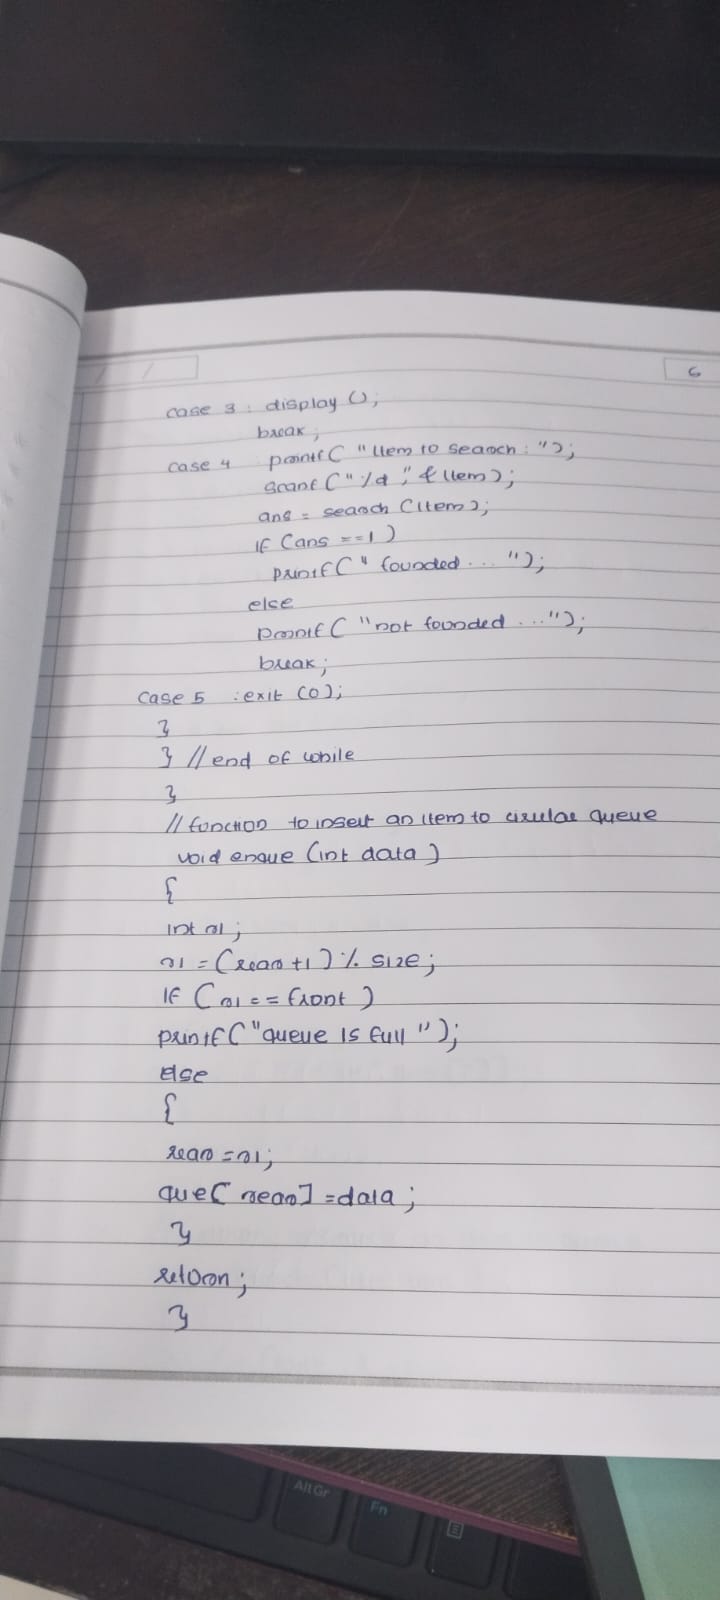 6
case 3 : display ();
break;
case 4 printf ( "Item to search : ");
scanf ("%d", & Item);
ans = search (Item);
if (ans == 1)
printf (" founded ... ");
else
printf ( "not founded ...");
break;
case 5 : exit (0);
}
} // end of while
}
// function to insert an item to circular queue
void enque (int data )
{
int r1;
r1 = (rear +1) % size;
if ( r1 == front )
printf ("queue is full ");
else
{
rear = r1;
que[ rear] = data ;
}
return;
}
Alt Gr
Fn